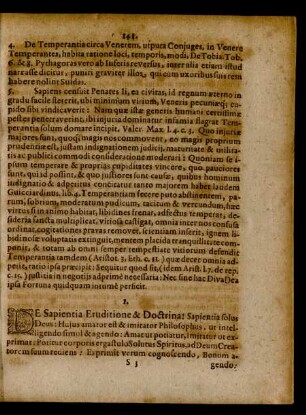 141.
4. De Temperantia circa Venerem, utpura Conjuges, in Venere
Temperantes, habita ratione loci, temporis, modi: De Tobia. Tob.
6. & 8. Pythagoras vero ab Inferis reversus, inter alia etiam istud
narrasse dicitur, puniri graviter illos, qui cum uxoribus suis rem
habere nolint Suidas.
5. Sapiens censuit Penates li, ea civitas, id regnum æterno in
gradu facile steterit, ubi minimum virium, Veneris pecuniæque cu-
pido sibi vindicaverit: Nam quæ istæ generis humani certissimæ
pestes penetraverint, ibi injuria dominatur infamia flagrat Tem-
perantia solum domare incipit. Valer. Max. l. 4. c. 3. Quo injuriæ
majores sunt, quoque magis nos commovent, eo magis proprium
prudentiæ est, justam indignationem judicii, maturitate & milita-
tis ac publici commodi consideratione moderari: Quoniam se i-
psum temperare & propriis cupiditates vincere, quo pauciores
sunt, qui id possint, & quo justiores sunt causæ, quibus hominum
indignatio & adpetitus concitatur tanto majorem habet laudem
Guicciardinus. lib. 4. Temperantiam facere puto abstinentem,
parum, sobrium, moderatum pudicum, tacitum & verecundum, hæc
virtus si in animo habitat, libidines frenat, adfectus temperat, de-
sideria sancta multiplicat, vitiosa castigat, omnia inter nos confusa
ordinat, cogitationes pravas removet, scientiam inserit, ignem li-
bidinosæ voluptatis extinguit, mentem placida tranquillitate com-
ponit, & totam ab omni semper tempestate vitiorum defendit
Temperantia tamdem (Aristot. 3. Eth. c. 11.) quæ decet omnia ad-
petit, ratio ipsa præcipit: Sequitur quod sit, (idem Arist. l. 7. de rep.
c. 15.) justitia in negotii adprime necessaria: Nec sine hac Diva Dea
ipsa Fortuna quidquam intume perficit.
I.
DE Sapientia Eruditione & Doctrina: Sapientia solus
Deum: Hujus amator est & imitator Philosophus, ut intel-
ligendo simul & agendo: Amatue potiatur, Imitatur ut ex-
primat: Potitur corporis ergastulo Solutus Spiritus, ad Deum Crea-
torem suum rediens: Exprimit verum cognoscendo, Bonum a-
S 3
gendo: